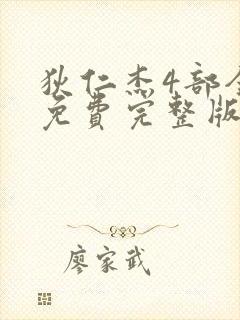 狄仁杰4部
免费完整版
廖家武